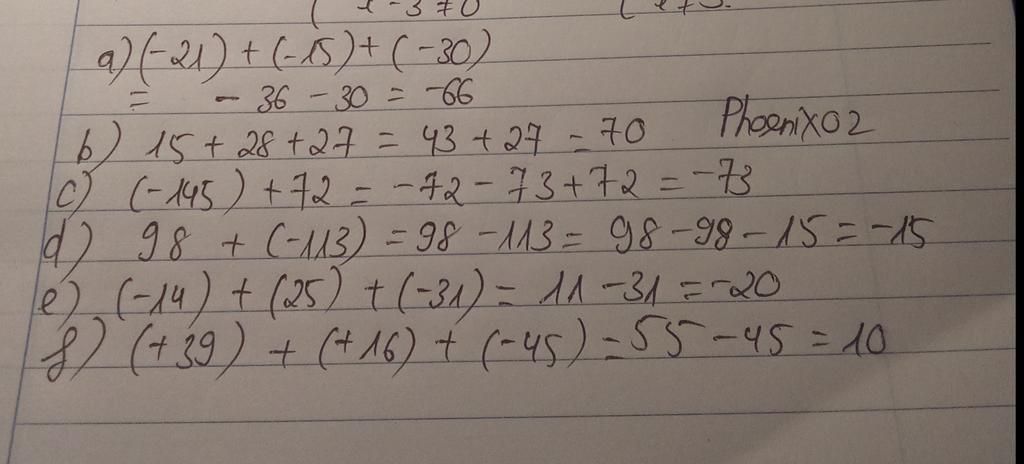 a) (-21) + (-15) + (-30)
= - 36 - 30 = -66
b) 15 + 28 + 27 = 43 + 27 = 70 PhoenixO2
c) (-145) + 72 = -72 - 73 + 72 = -73
d) 98 + (-113) = 98 - 113 = 98 - 98 - 15 = -15
e) (-14) + (25) + (-31) = 11 - 31 = -20
f) (+39) + (+16) + (-45) = 55 - 45 = 10